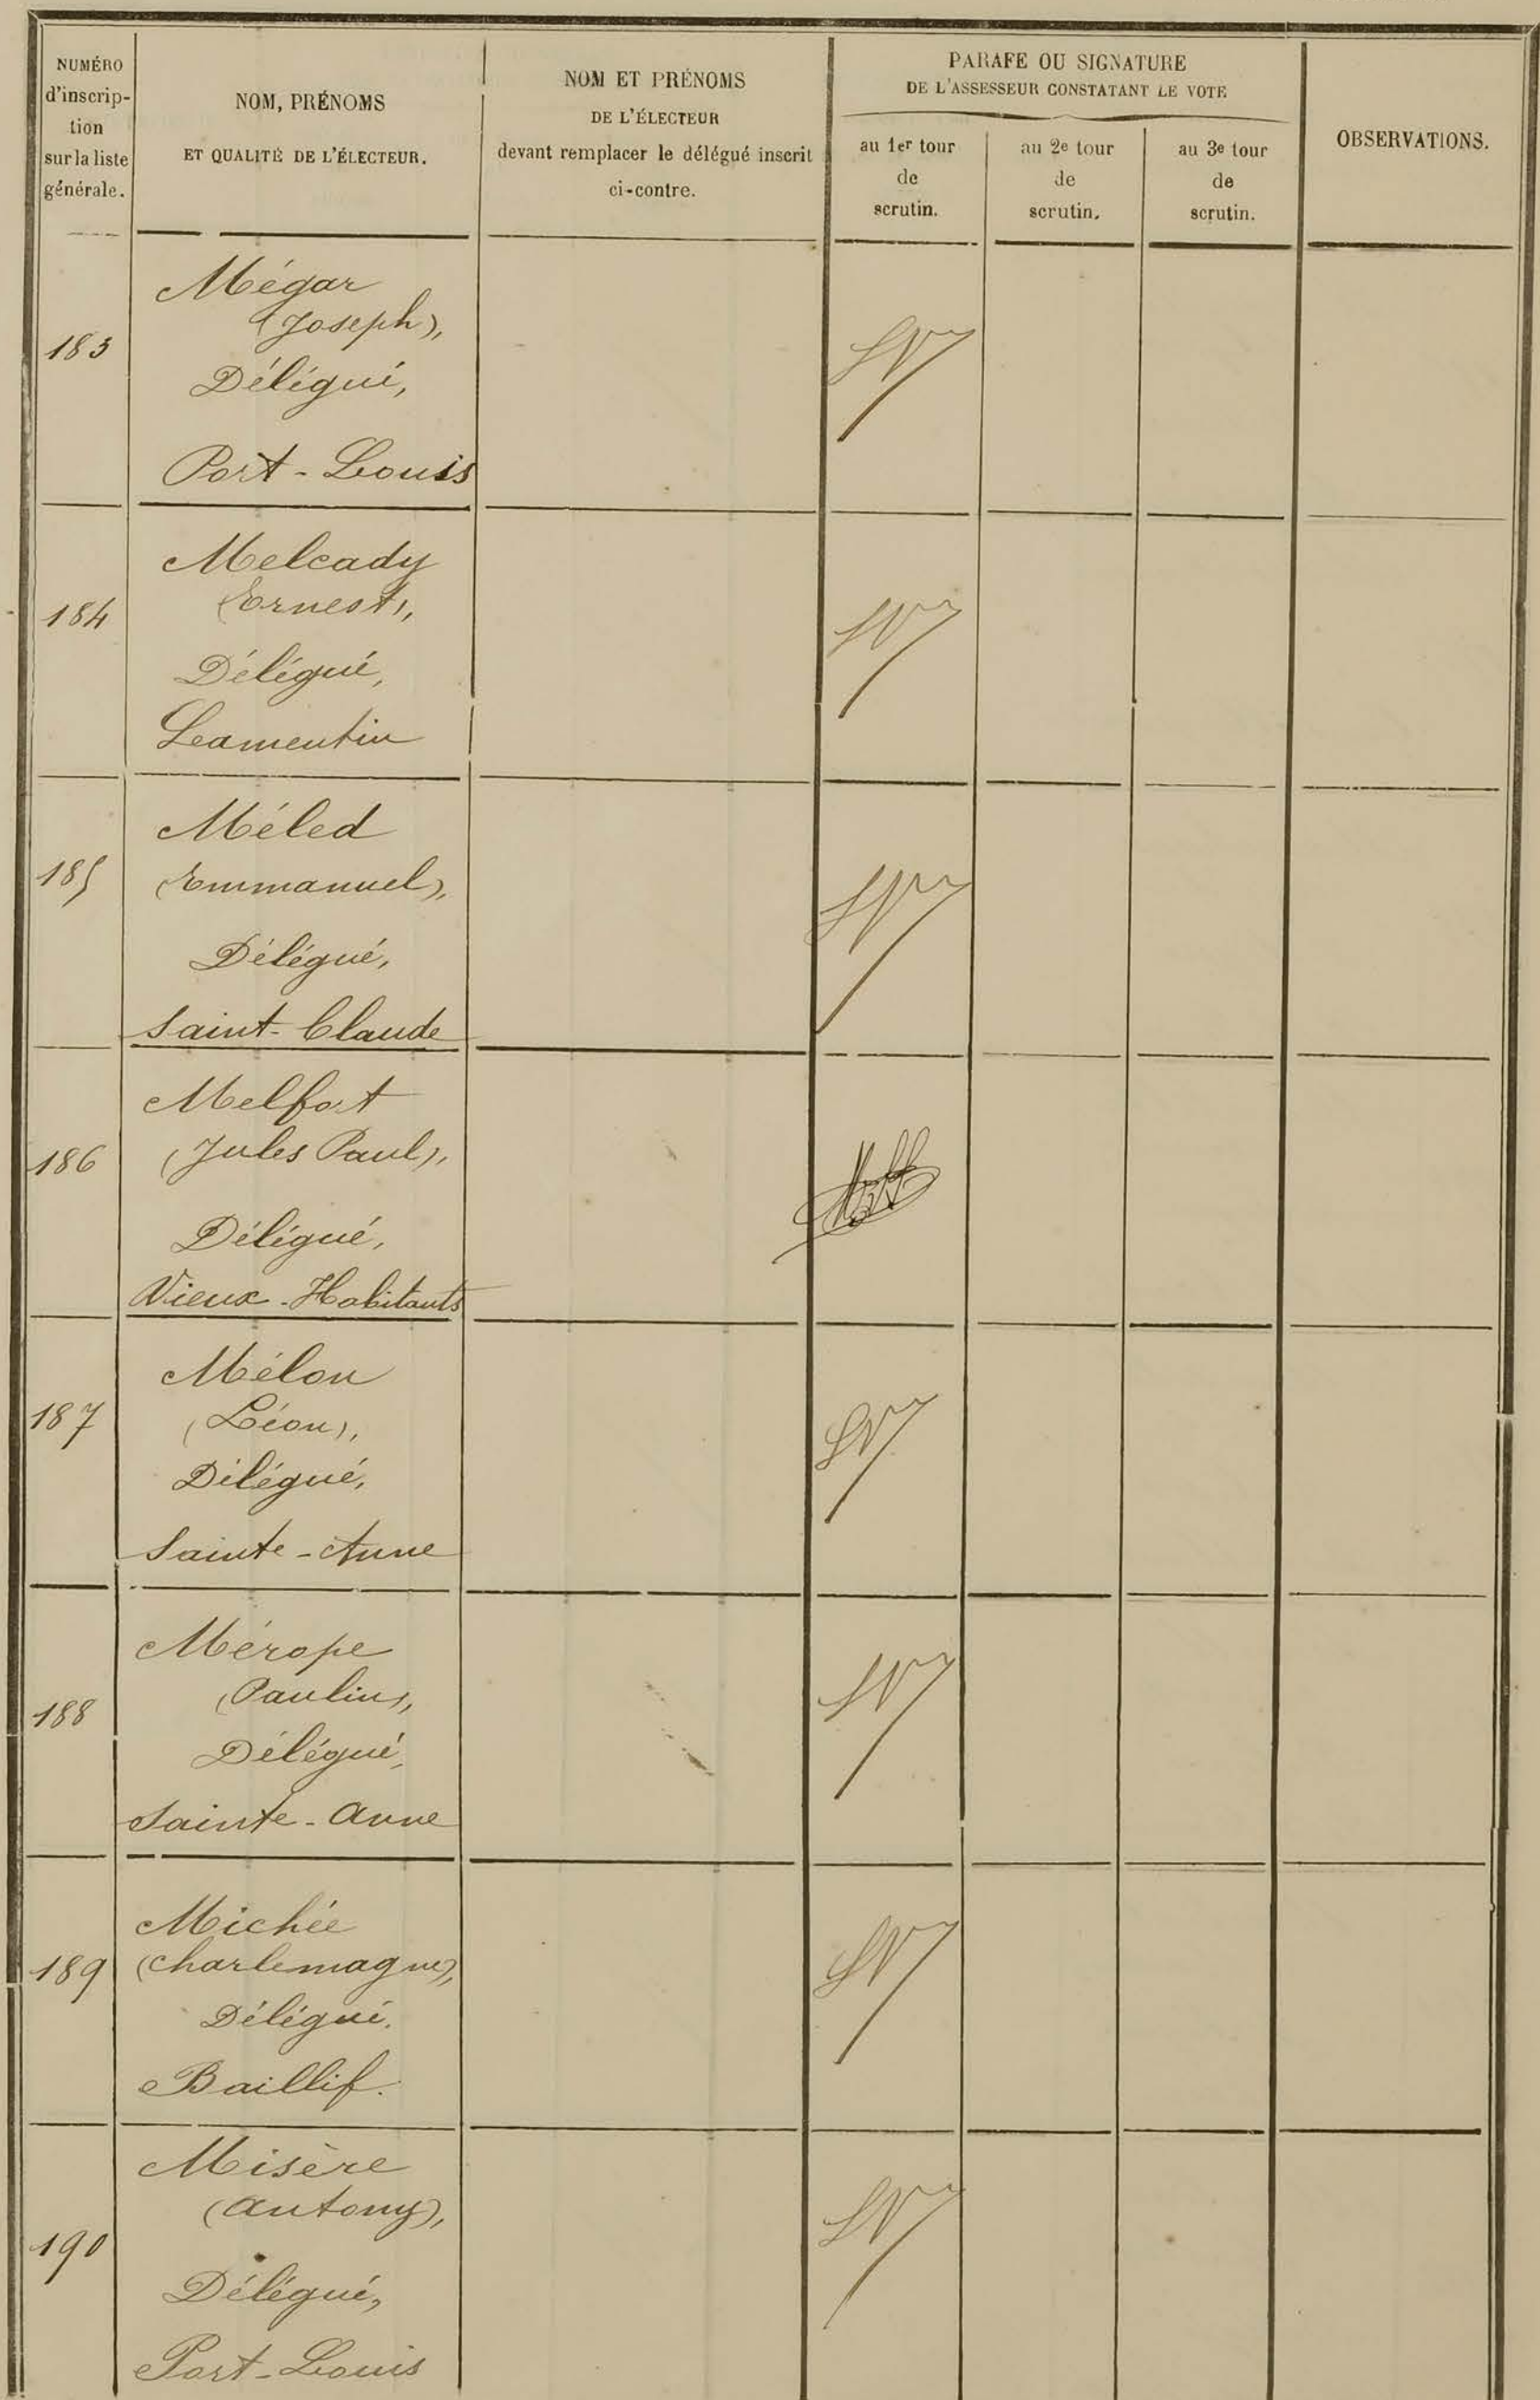 NUMÉRO
d'inscrip-
tion
sur la liste
générale.
NOM, PRÉNOMS
ET QUALITÉ DE L'ÉLECTEUR.
NOM ET PRÉNOMS
DE L'ÉLECTEUR
devant remplacer le délégué inscrit
ci-contre.
PARAFE OU SIGNATURE
DE L'ASSESSEUR CONSTATANT LE VOTE
au 1er tour
de
scrutin.
au 2e tour
de
scrutin.
au 3e tour
de
scrutin.
OBSERVATIONS.
183
Mégar
(Joseph),
Délégué,
Port-Louis
184
Melcady
(Ernest),
Délégué,
Lamentin
185
Méled
(Emmanuel),
Délégué,
Saint-Claude
186
Melfort
(Jules Paul),
Délégué,
Vieux-Habitants
187
Mélon
(Léon),
Délégué,
Sainte-Anne
188
Mérope
(Paulin),
Délégué,
Sainte-Anne
189
Michée
(Charlemagne),
Délégué.
Baillif.
190
Misère
(Antony),
Délégué,
Port-Louis